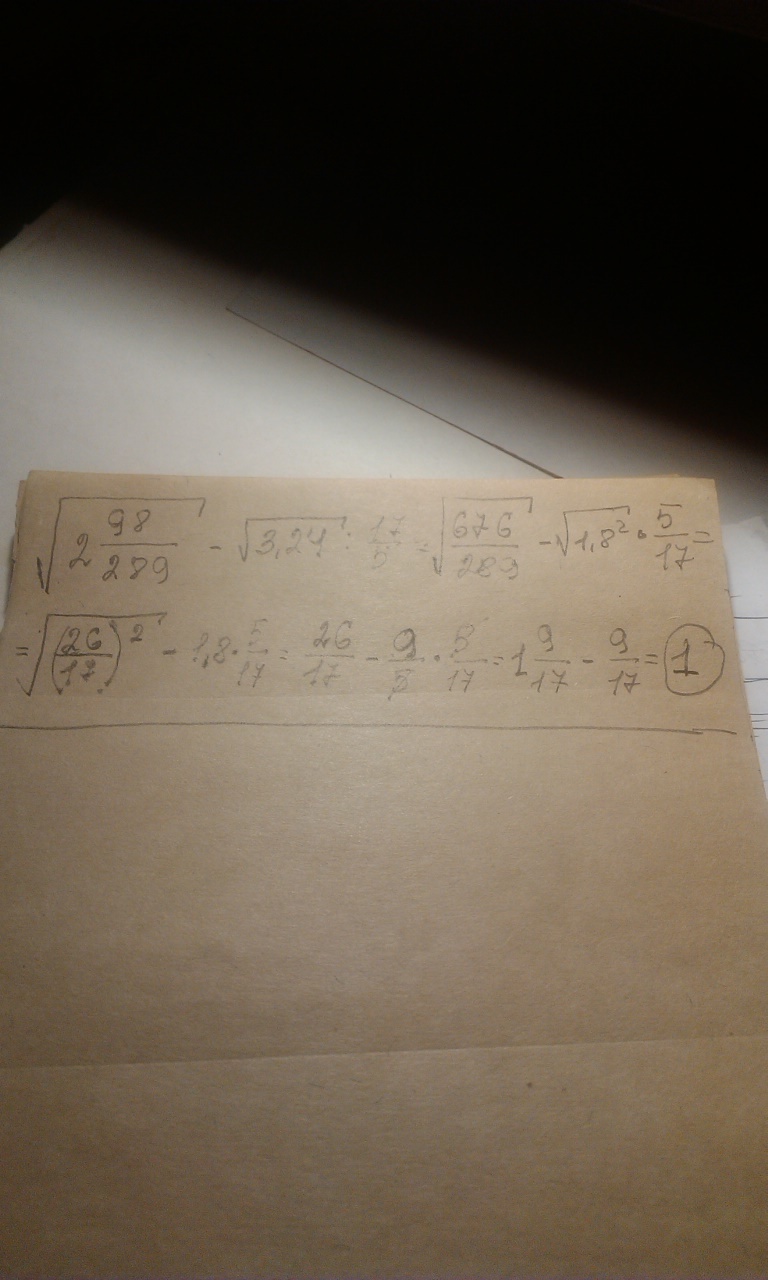 √(2 98/289) - √3,24 : 17/5 = √(676/289) - √1,8² · 5/17 =
= √(26/17)² - 1,8 · 5/17 = 26/17 - 9/5 · 5/17 = 1 9/17 - 9/17 = 1